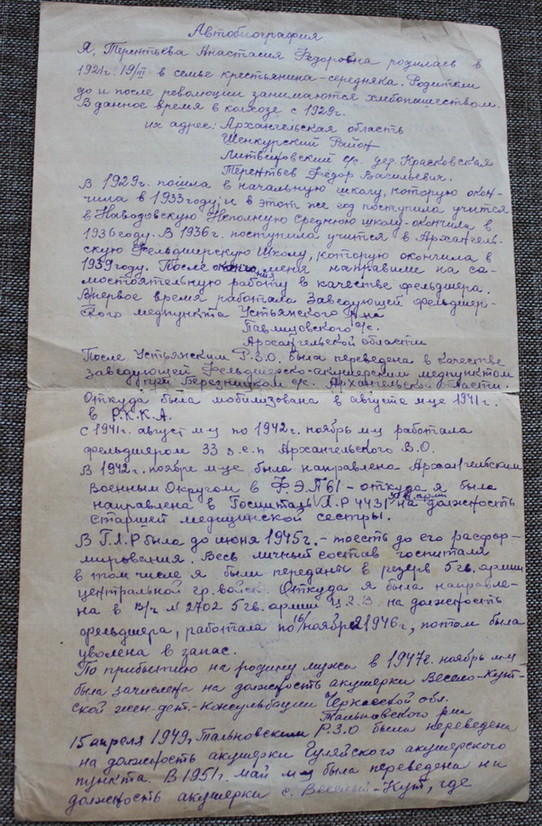 Автобиография
Я, Терентьева Анастасия Федоровна родилась в
1921г. 19/III в семье крестьянина-середняка. Родители
до и после революции занимаются хлебопашеством.
В данное время в колхозе с 1929г.
их адрес: Архангельская область
Шенкурский Район
с/с. дер. Красковская
Терентьев Фёдор Васильевич.
В 1929г. пошла в начальную школу, которую окон-
чила в 1933 году, и в этот же год поступила учится
в Неполную Среднюю школу-окончила в
1936 году. В 1936г. поступила учится в Архангель-
скую Фельдшерскую Школу, которую окончила в
1939 году. После меня направили на са-
мостоятельную работу в качестве фельдшера.
Впервое время работала Заведующей фельдшер-
ского медпункта Устьянского р-на
с/с.
Архангельской области
После Устьянским Р.З.О. была переведена в качестве
заведующей Фельдшерско-акушерским медпунктом
Березницком с/с. Архангельской области.
Откуда была мобилизована в августе м-це 1941г.
в Р.К.К.А.
С 1941г. август м-ц по 1942г. ноябрь м-ц работала
фельдшером 33 Архангельского В.О.
В 1942г. ноябре м-це была направлена Архангельским
Военным Округом в Ф.Э.П 61 - откуда я была
направлена в Госпиталь Л.Р 4431 на должность
старшей медицинской сестры.
В Г.Л.Р была до июня 1945г. - тоесть до его расфор-
мирования. Весь личный состав госпиталя
в том числе и я были переданы в резерв 5 гв. армии
центральной гр. войск. Откуда я была направле-
на в В/ч № 2702 5 гв. армии Ц.Г.В. на должность
фельдшера, работала по 16/ноября 1946г, потом была
уволена в запас.
По прибытию на родину мужа в 1947г. ноябрь м-ц
была зачислена на должность акушерки Весело-Кут-
ской жен-дет-консультации Черкасской обл.
Тальновского р-на
15 апреля 1949г Тальновским Р.З.О была переведена
на должность акушерки Гуляйского акушерского
пункта. В 1951г. май м-ц была переведена на
должность акушерки с. Веселый-Кут, где